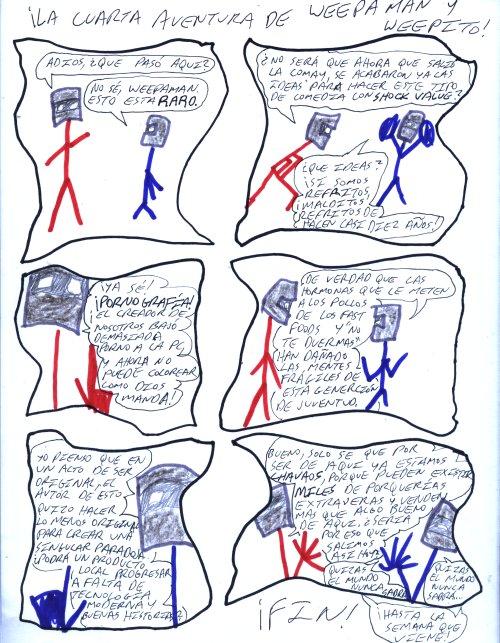 ¡LA CUARTA AVENTURA DE WEEPAMAN Y
WEEPITO!
ADIOS, ¿QUE PASÓ AQUI?
NO SÉ, WEEPAMAN.
ESTO ESTA RARO.
¿NO SERÁ QUE AHORA QUE SALIÓ
LA COMAY, SE ACABARON YA LAS
IDEAS PARA HACER ESTE TIPO
DE COMEDIA CON SHOCK VALUE?
¿QUE IDEAS?
¡SI SOMOS
REFRITOS,
¡MALDITOS
REFRITOS DE
HACEN CASI DIEZ AÑOS!
¡YA SÉ!
¡PORNOGRAFÍA!
EL CREADOR DE
NOSOTROS BAJÓ
DEMASIADA
PORNO A LA PC
Y AHORA NO
PUEDE COLOREAR
COMO DIOS
MANDA!
DE VERDAD QUE LAS
HORMONAS QUE LE METEN
A LOS POLLOS
DE LOS FAST
FOODS Y "NO
TE DUERMAS"
HAN DAÑADO
LAS MENTES
FRÁGILES DE
ESTA GENERCIÓN
DE JUVENTUD.
YO PIENSO QUE EN
UN ACTO DE SER
ORIGINAL, EL
AUTOR DE ESTO
QUIZO HACER
LO MENOS ORIGINAL
PARA CREAR UNA
SINGULAR PARADOJA
¿PODRÁ UN PRODUCTO
LOCAL PROGRESAR
A FALTA DE
TECNOLOGÍA
MODERNA Y
BUENAS HISTORIAS?
BUENO, SOLO SE QUE POR
SER DE AQUI YA ESTAMOS
CHAVAOS, PORQUE PUEDEN EXISTIR
MILES DE PORQUERÍAS
EXTRANJERAS Y VENDEN
MAS QUE ALGO BUENO
DE AQUI. ¿SERÍA
POR ESO QUE
SALIMOS
ASI HOY?
QUIZAS
EL MUNDO
NUNCA SABRÁ
QUIZAS
EL MUNDO
NUNCA
SABRÁ...
¡HASTA LA
SEMANA QUE
VIENE!
¡FIN!